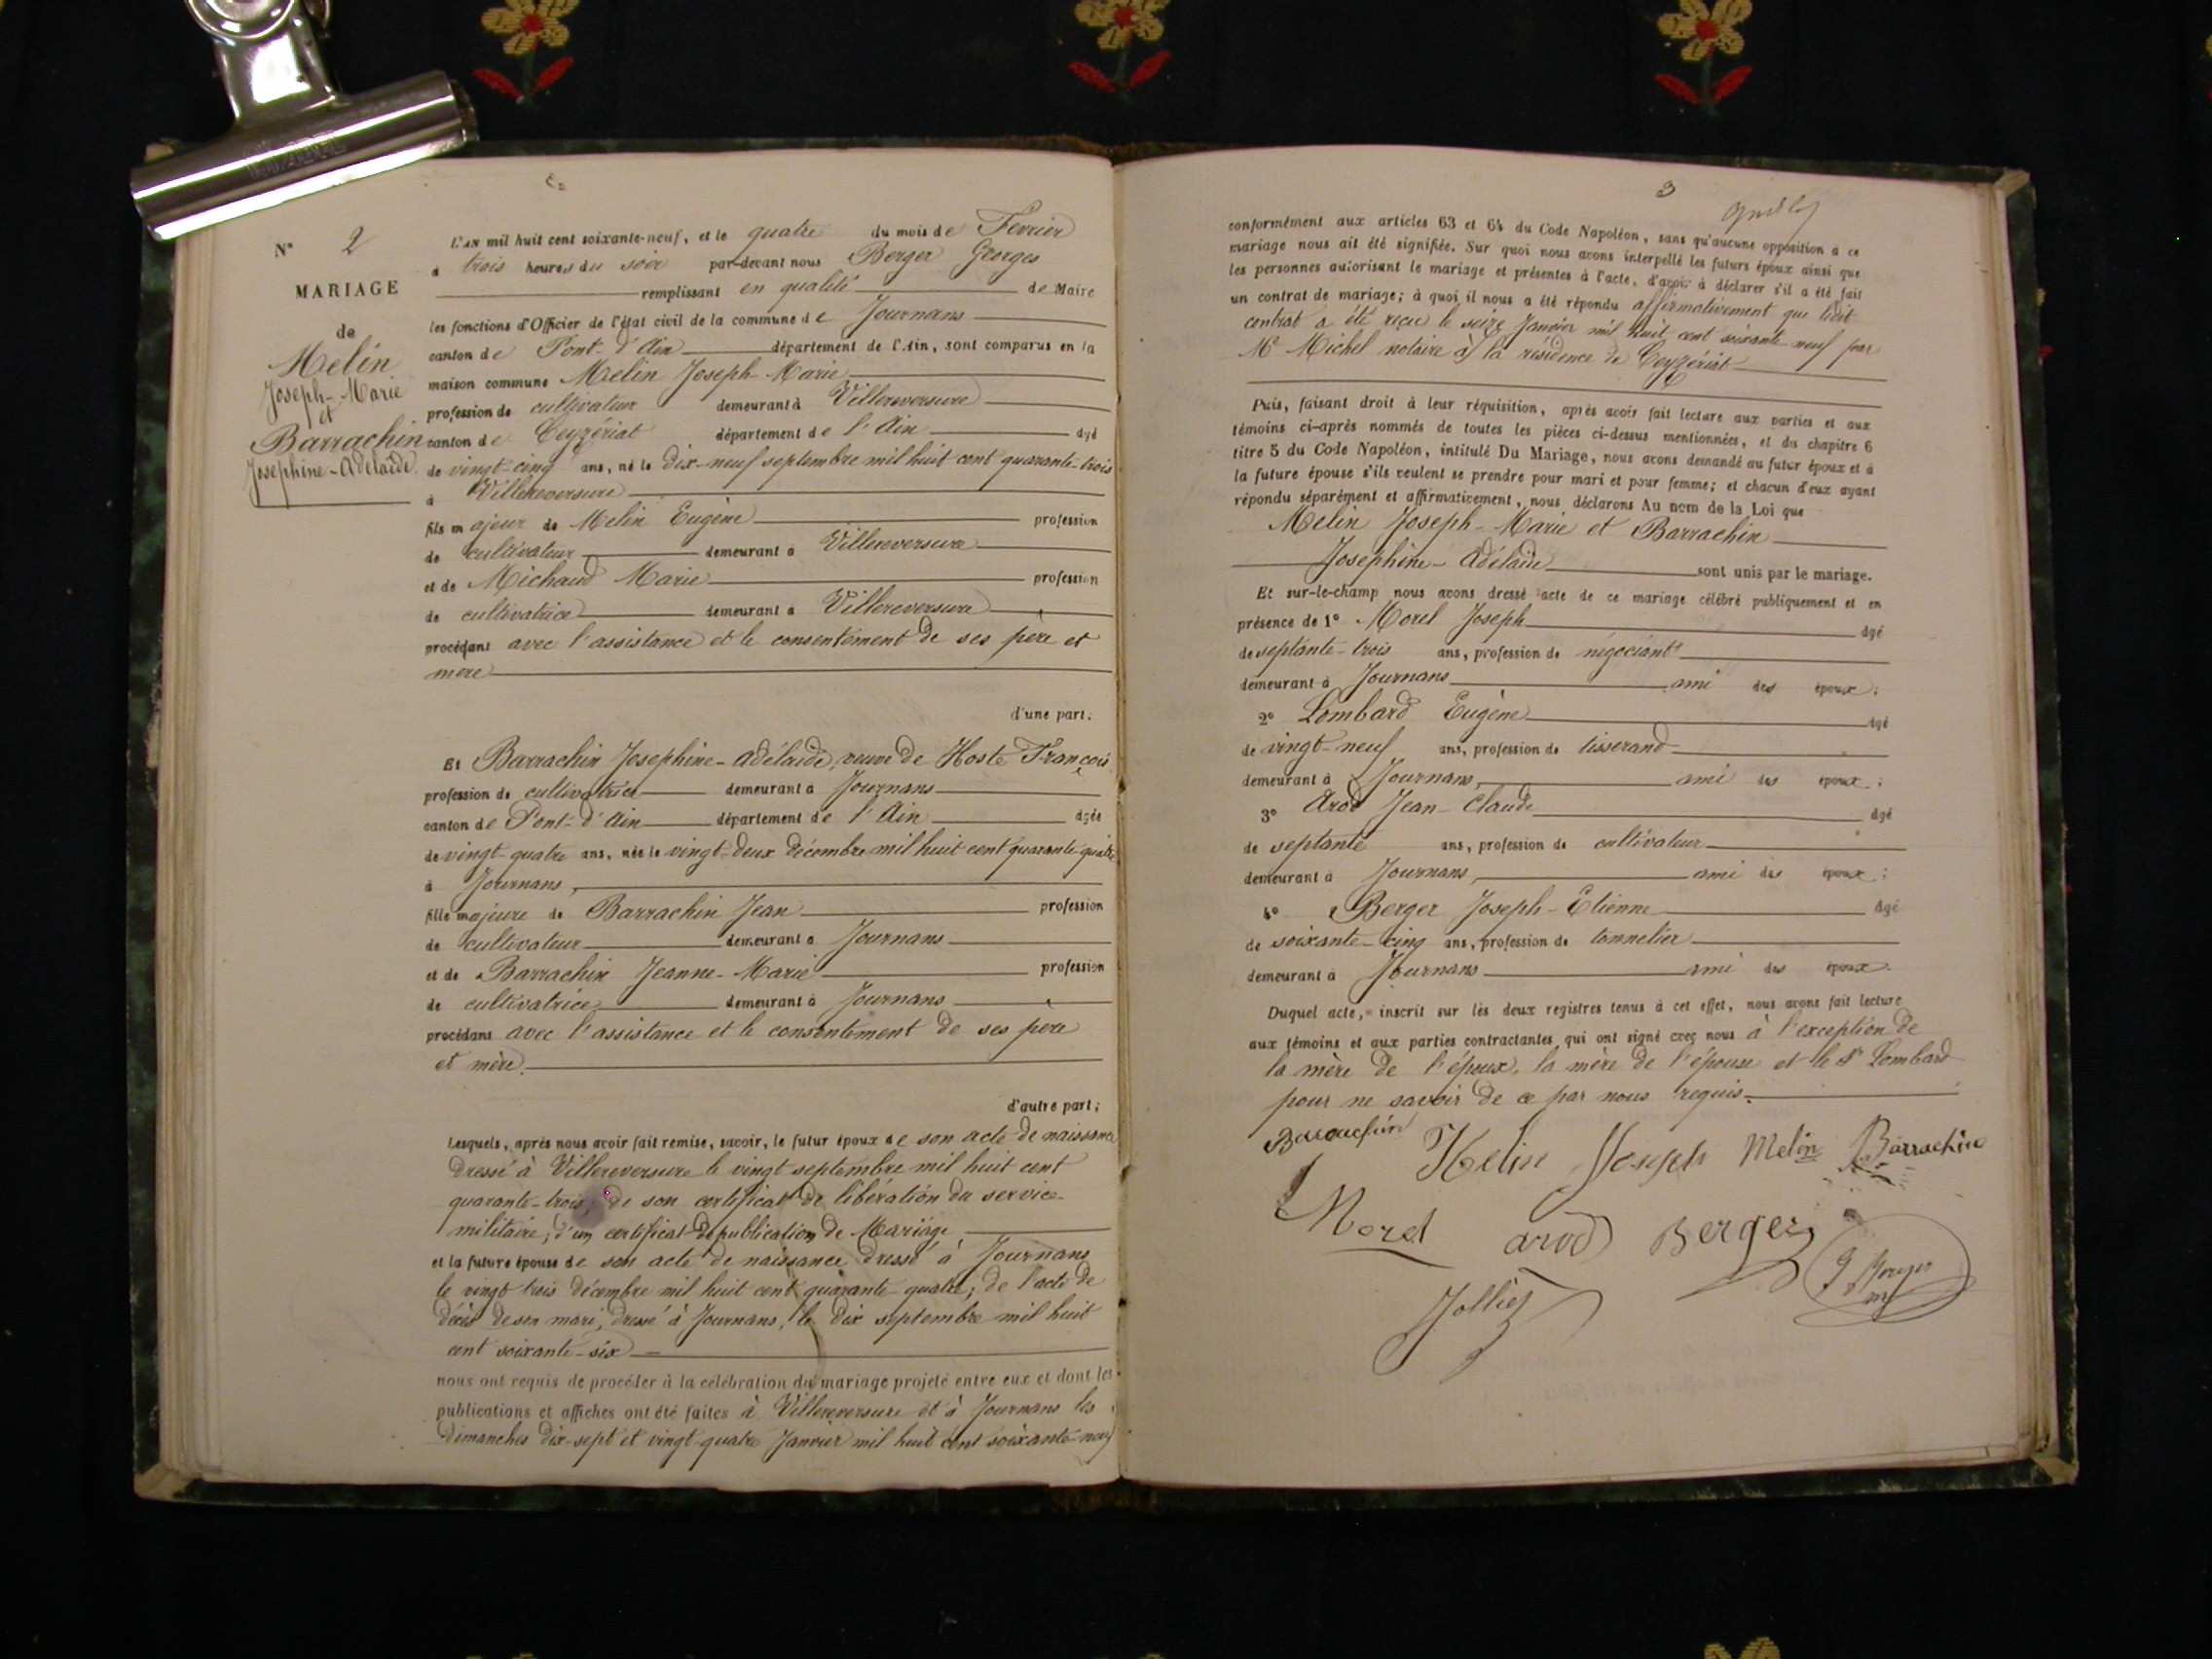 2
N° 2
MARIAGE
de
Melin
Joseph-Marie
et
Barrachin
Josephine-Adélaïde.
L'AN mil huit cent soixante-neuf, et le quatre du mois de Février
à trois heures du soir par-devant nous Berger Georges
remplissant en qualité de Maire
les fonctions d'Officier de l'état civil de la commune de Journans
canton de Pont-d'Ain département de l'Ain, sont comparus en la
maison commune Melin Joseph-Marie
profession de cultivateur demeurant à Villereversure
canton de Ceyzériat département de l'Ain âgé
de vingt-cinq ans, né le dix-neuf septembre mil huit cent quarante-trois
à Villereversure
fils majeur de Melin Eugène profession
de cultivateur demeurant à Villereversure
et de Michaud Marie profession
de cultivatrice demeurant à Villereversure
procédant avec l'assistance et le consentement de ses père et
mère
d'une part.
Et Barrachin Josephine-Adélaïde, veuve de Hoste François
profession de cultivatrice demeurant à Journans
canton de Pont-d'Ain département de l'Ain âgée
de vingt-quatre ans, née le vingt-deux décembre mil huit cent quarante-quatre
à Journans,
fille majeure de Barrachin Jean profession
de cultivateur demeurant à Journans
et de Barrachin Jeanne-Marie profession
de cultivatrice demeurant à Journans
procédant avec l'assistance et le consentement de ses père
et mère.
d'autre part;
Lesquels, après nous avoir fait remise, savoir, le futur époux de son acte de naissance
dressé à Villereversure le vingt septembre mil huit cent
quarante-trois; de son certificat de libération du service
militaire; d'un certificat de publication de Mariage
et la future épouse de son acte de naissance dressé à Journans
le vingt trois décembre mil huit cent quarante-quatre; de l'acte de
décès de son mari, dressé à Journans, le dix septembre mil huit
cent soixante-six
nous ont requis de procéder à la célébration du mariage projeté entre eux et dont les
publications et affiches ont été faites à Villereversure et à Journans les
Dimanches dix-sept et vingt-quatre Janvier mil huit cent soixante-neuf
3
conformément aux articles 63 et 64 du Code Napoléon, sans qu'aucune opposition à ce
mariage nous ait été signifiée. Sur quoi nous avons interpellé les futurs époux ainsi que
les personnes autorisant le mariage et présentes à l'acte, d'avoir à déclarer s'il a été fait
un contrat de mariage; à quoi il nous a été répondu affirmativement que ledit
contrat a été reçu le seize Janvier mil huit cent soixante-neuf par
Me Michel notaire à la résidence de Ceyzériat
Puis, faisant droit à leur réquisition, après avoir fait lecture aux parties et aux
témoins ci-après nommés de toutes les pièces ci-dessus mentionnées, et du chapitre 6
titre 5 du Code Napoléon, intitulé Du Mariage, nous avons demandé au futur époux et à
la future épouse s'ils veulent se prendre pour mari et pour femme; et chacun d'eux ayant
répondu séparément et affirmativement, nous déclarons Au nom de la Loi que
Melin Joseph-Marie et Barrachin
Josephine-Adélaïde sont unis par le mariage.
Et sur-le-champ nous avons dressé acte de ce mariage célébré publiquement et en
présence de 1° Morel Joseph âgé
de septante-trois ans, profession de négociant
demeurant à Journans ami des époux;
2° Lombard Eugène âgé
de vingt-neuf ans, profession de tisserand
demeurant à Journans, ami des époux;
3° Arod Jean-Claude âgé
de septante ans, profession de cultivateur
demeurant à Journans, ami des époux;
4° Berger Joseph-Etienne âgé
de soixante-cinq ans, profession de tonnelier
demeurant à Journans ami des époux.
Duquel acte, inscrit sur les deux registres tenus à cet effet, nous avons fait lecture
aux témoins et aux parties contractantes qui ont signé avec nous à l'exception de
la mère de l'époux, la mère de l'épouse et le Sr Lombard
pour ne savoir de ce par nous requis.
Barrachin Melin Joseph Melin Barrachin
Morel arod Berger
Jollie G Berger